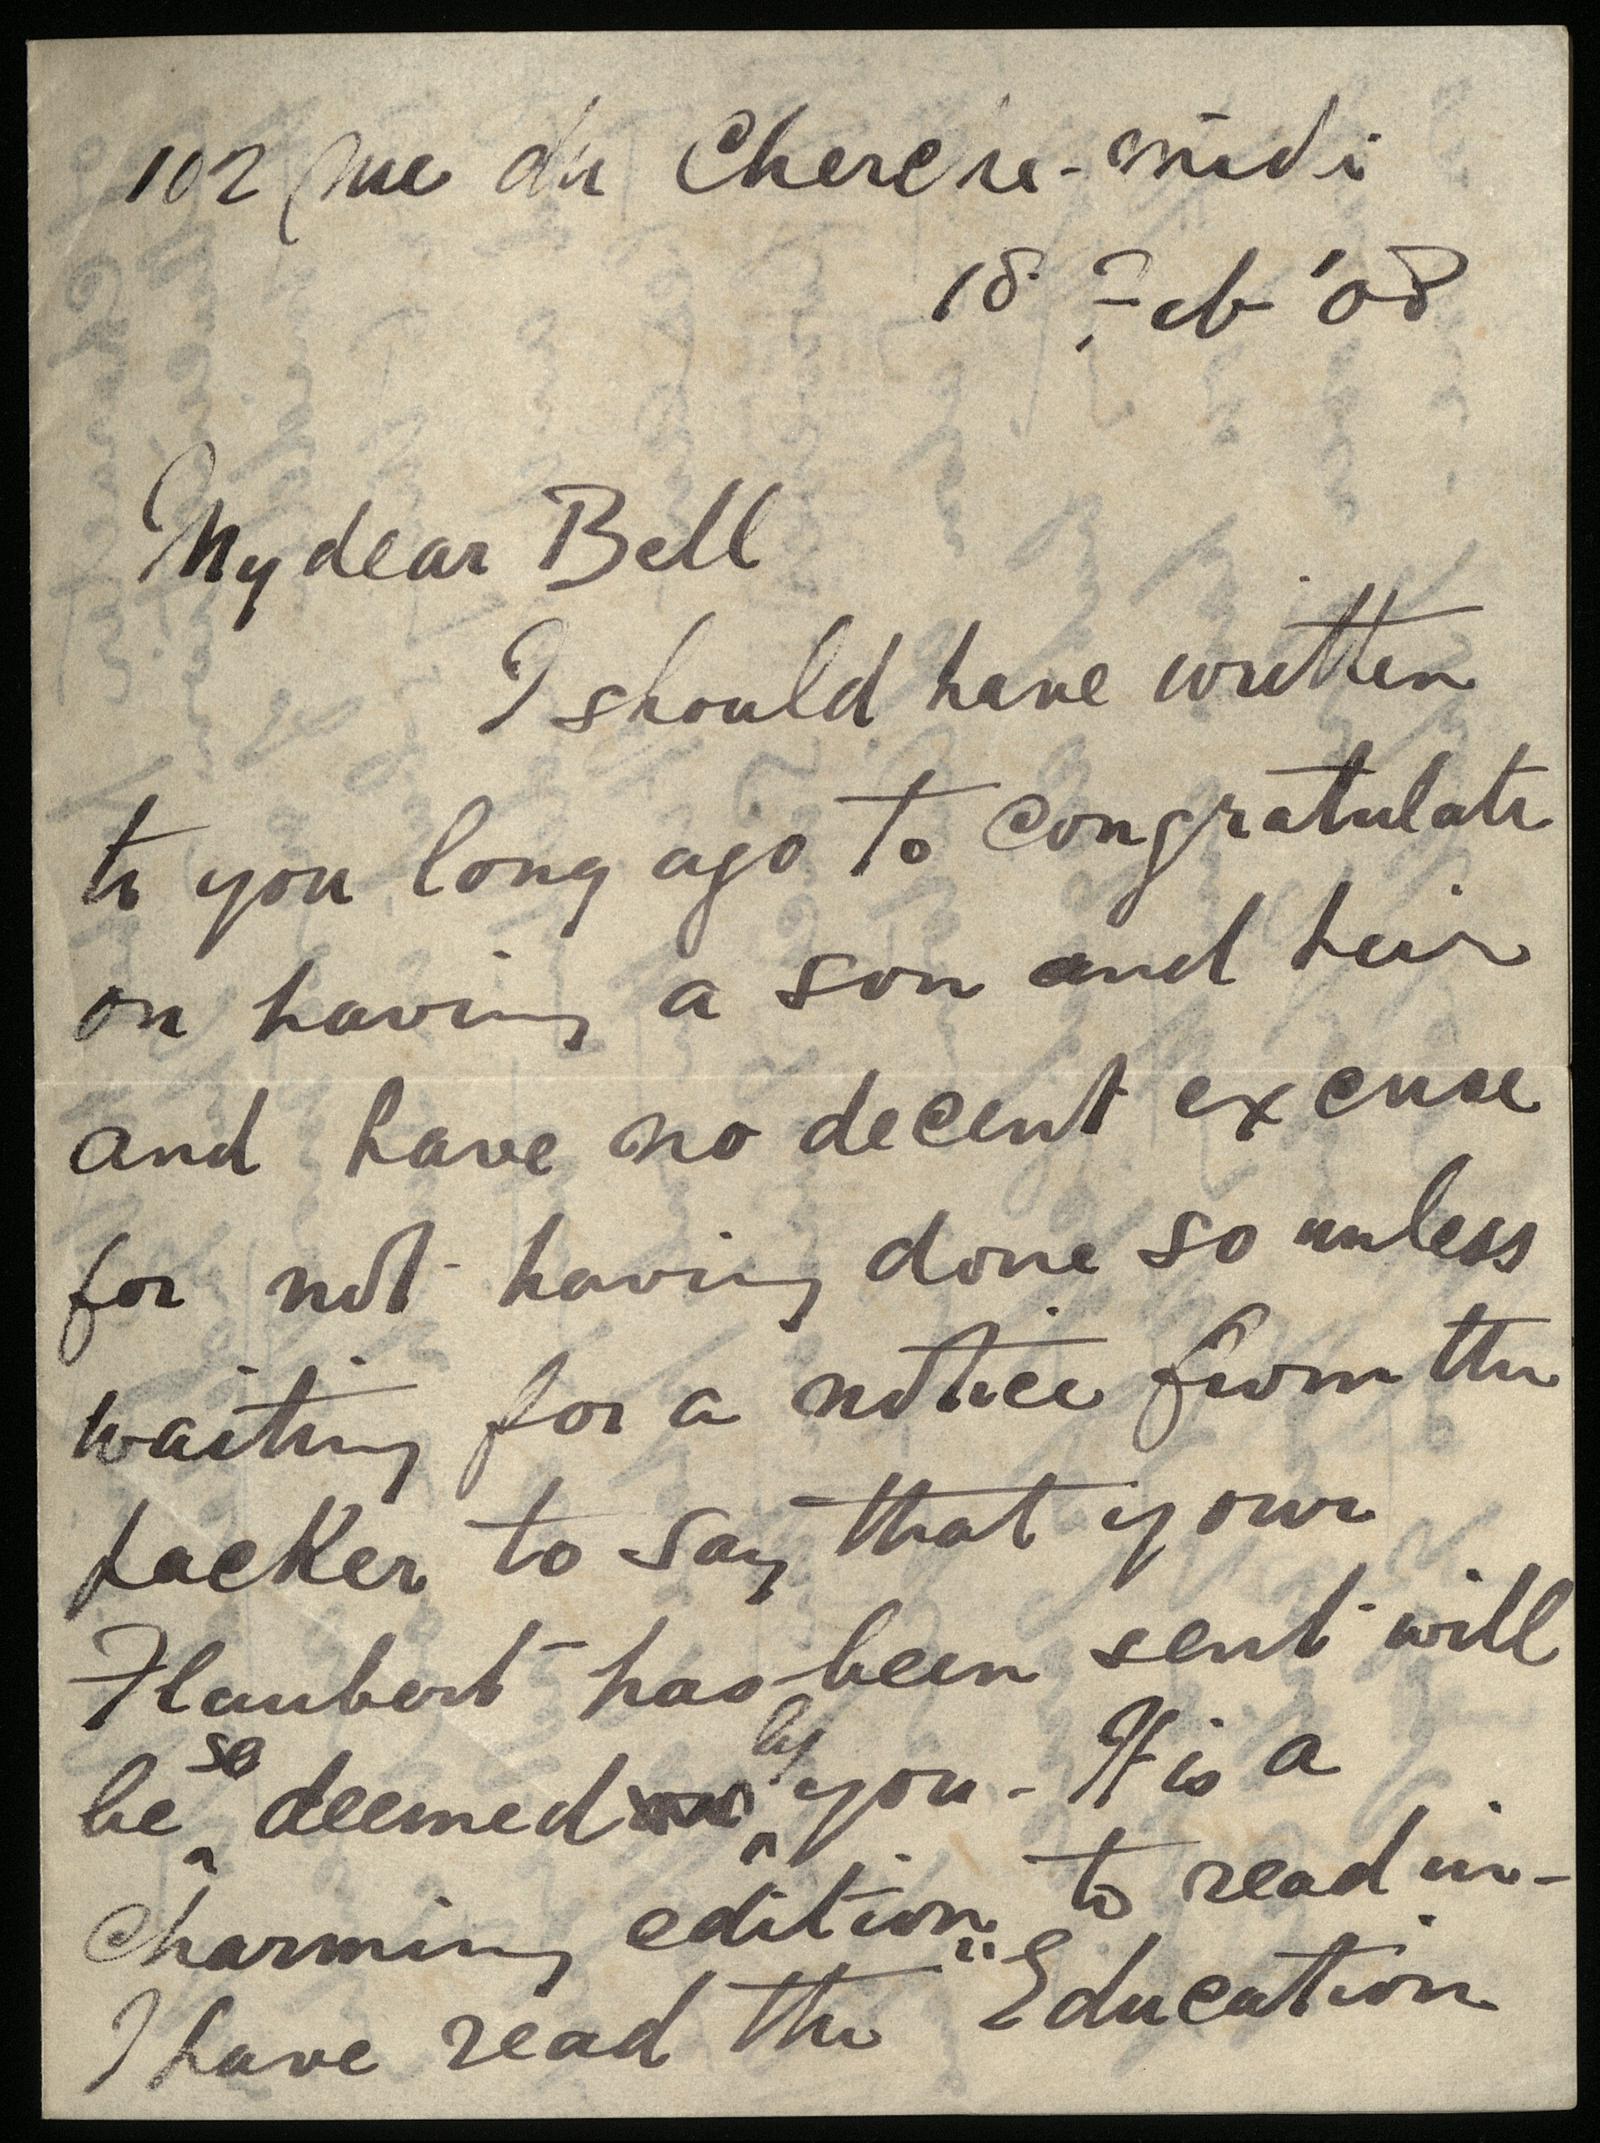 102 rue du Cherche-midi
18 Feb '08
My dear Bell
I should have written
to you long ago to congratulate
on having a son and heir
and have no decent excuse
for not having done so unless
waiting for a notice from the
packer to say that your
Flaubert has been sent will
be so deemed by you - It is a
charming edition to read in -
I have read the "Education